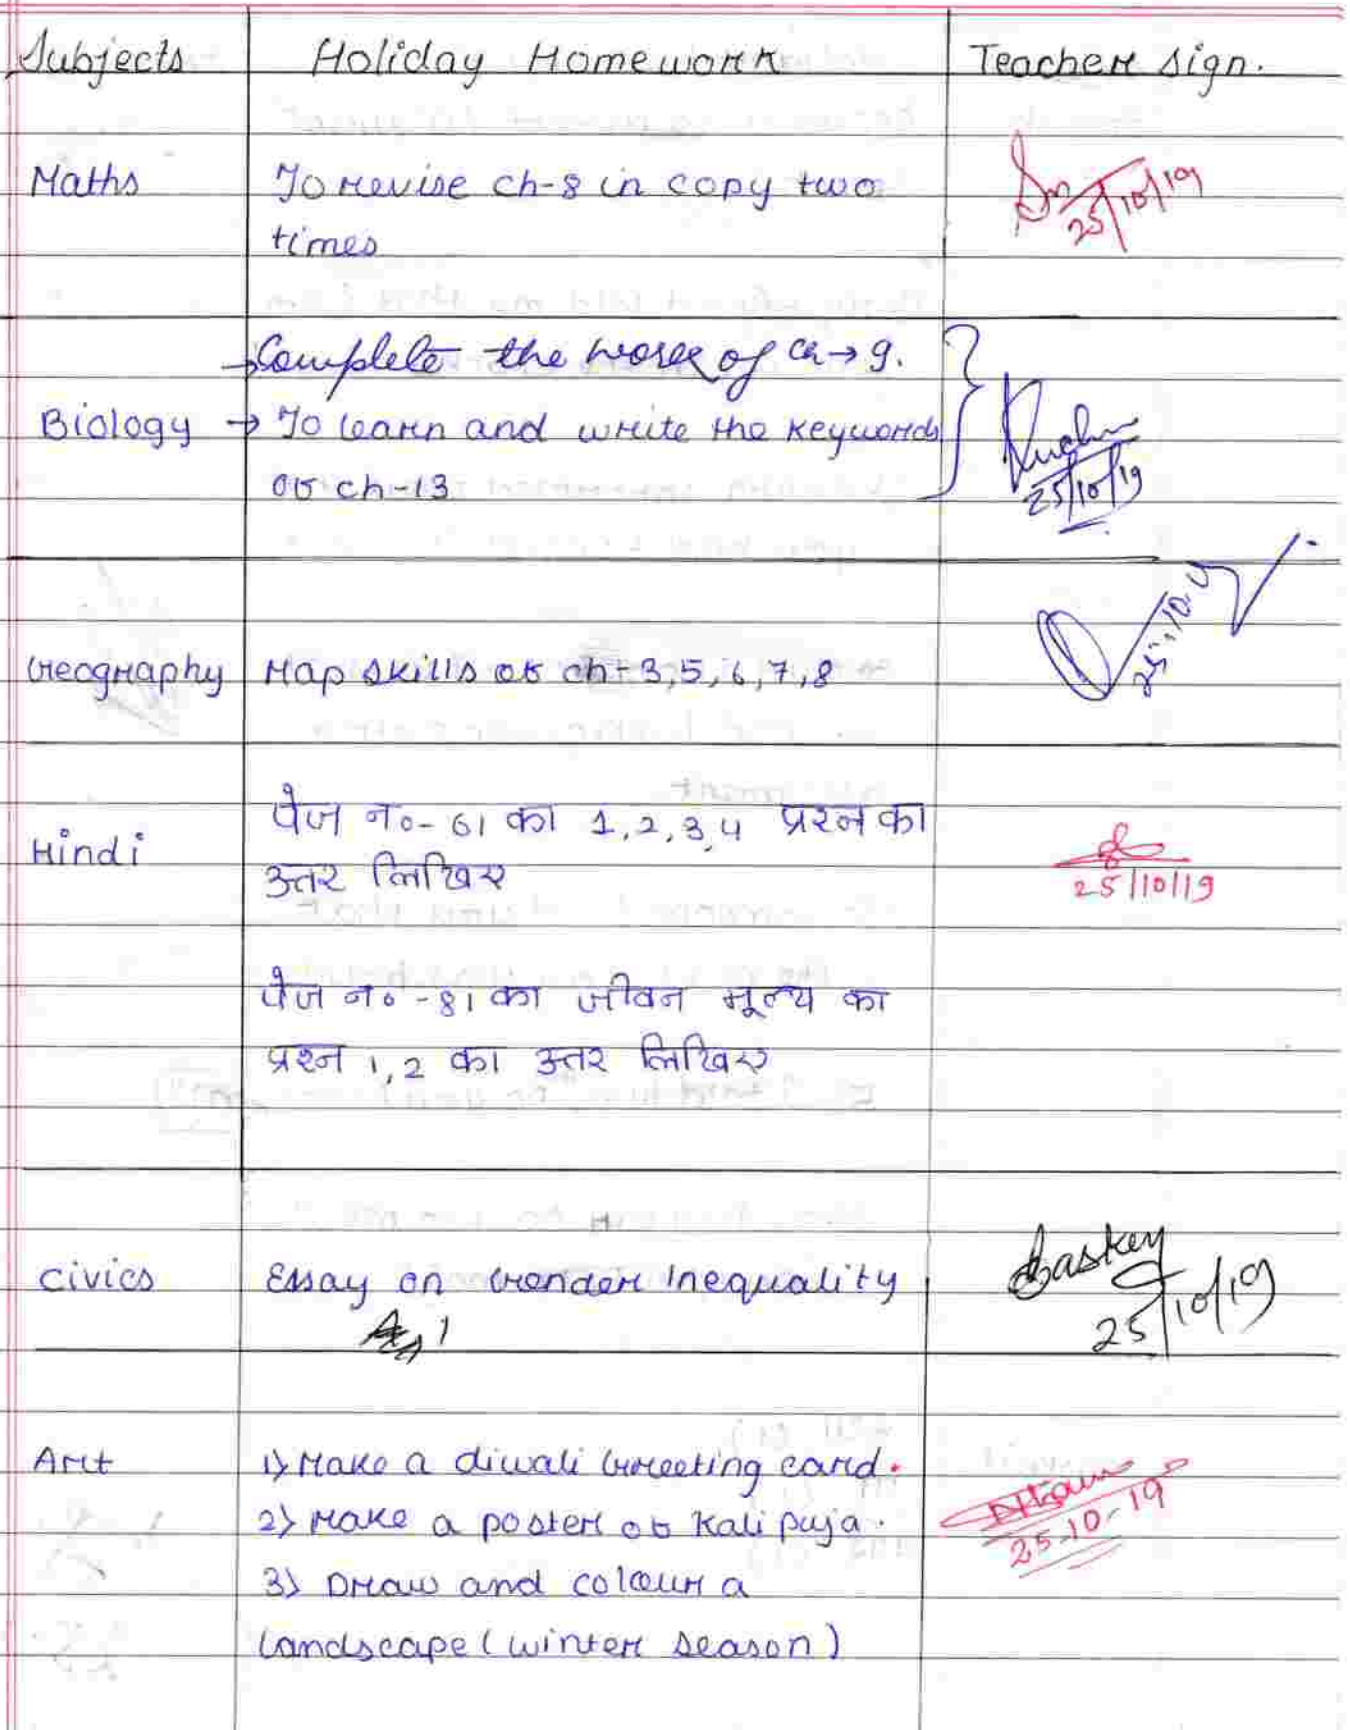 Subjects Holiday Homework Teacher sign.
Maths To revise ch-8 in copy two
times
25/10/19
→Complete the work of ch→9.
Biology → To learn and write the keywords
of ch-13
25/10/19
Geography Map skills of ch-3,5,6,7,8
25.10.19
पेज न०-61 का 1,2,3,4 प्रश्न का
Hindi
उत्तर लिखिए
25/10/19
पेज न०-81 का जीवन मूल्य का
प्रश्न 1,2 का उत्तर लिखिए
Civics Essay on Gender Inequality Baskey
25/10/19
Art 1) Make a diwali Greeting card.
2) Make a poster of Kali puja.
25-10-19
3) Draw and colour a
landscape (winter season)